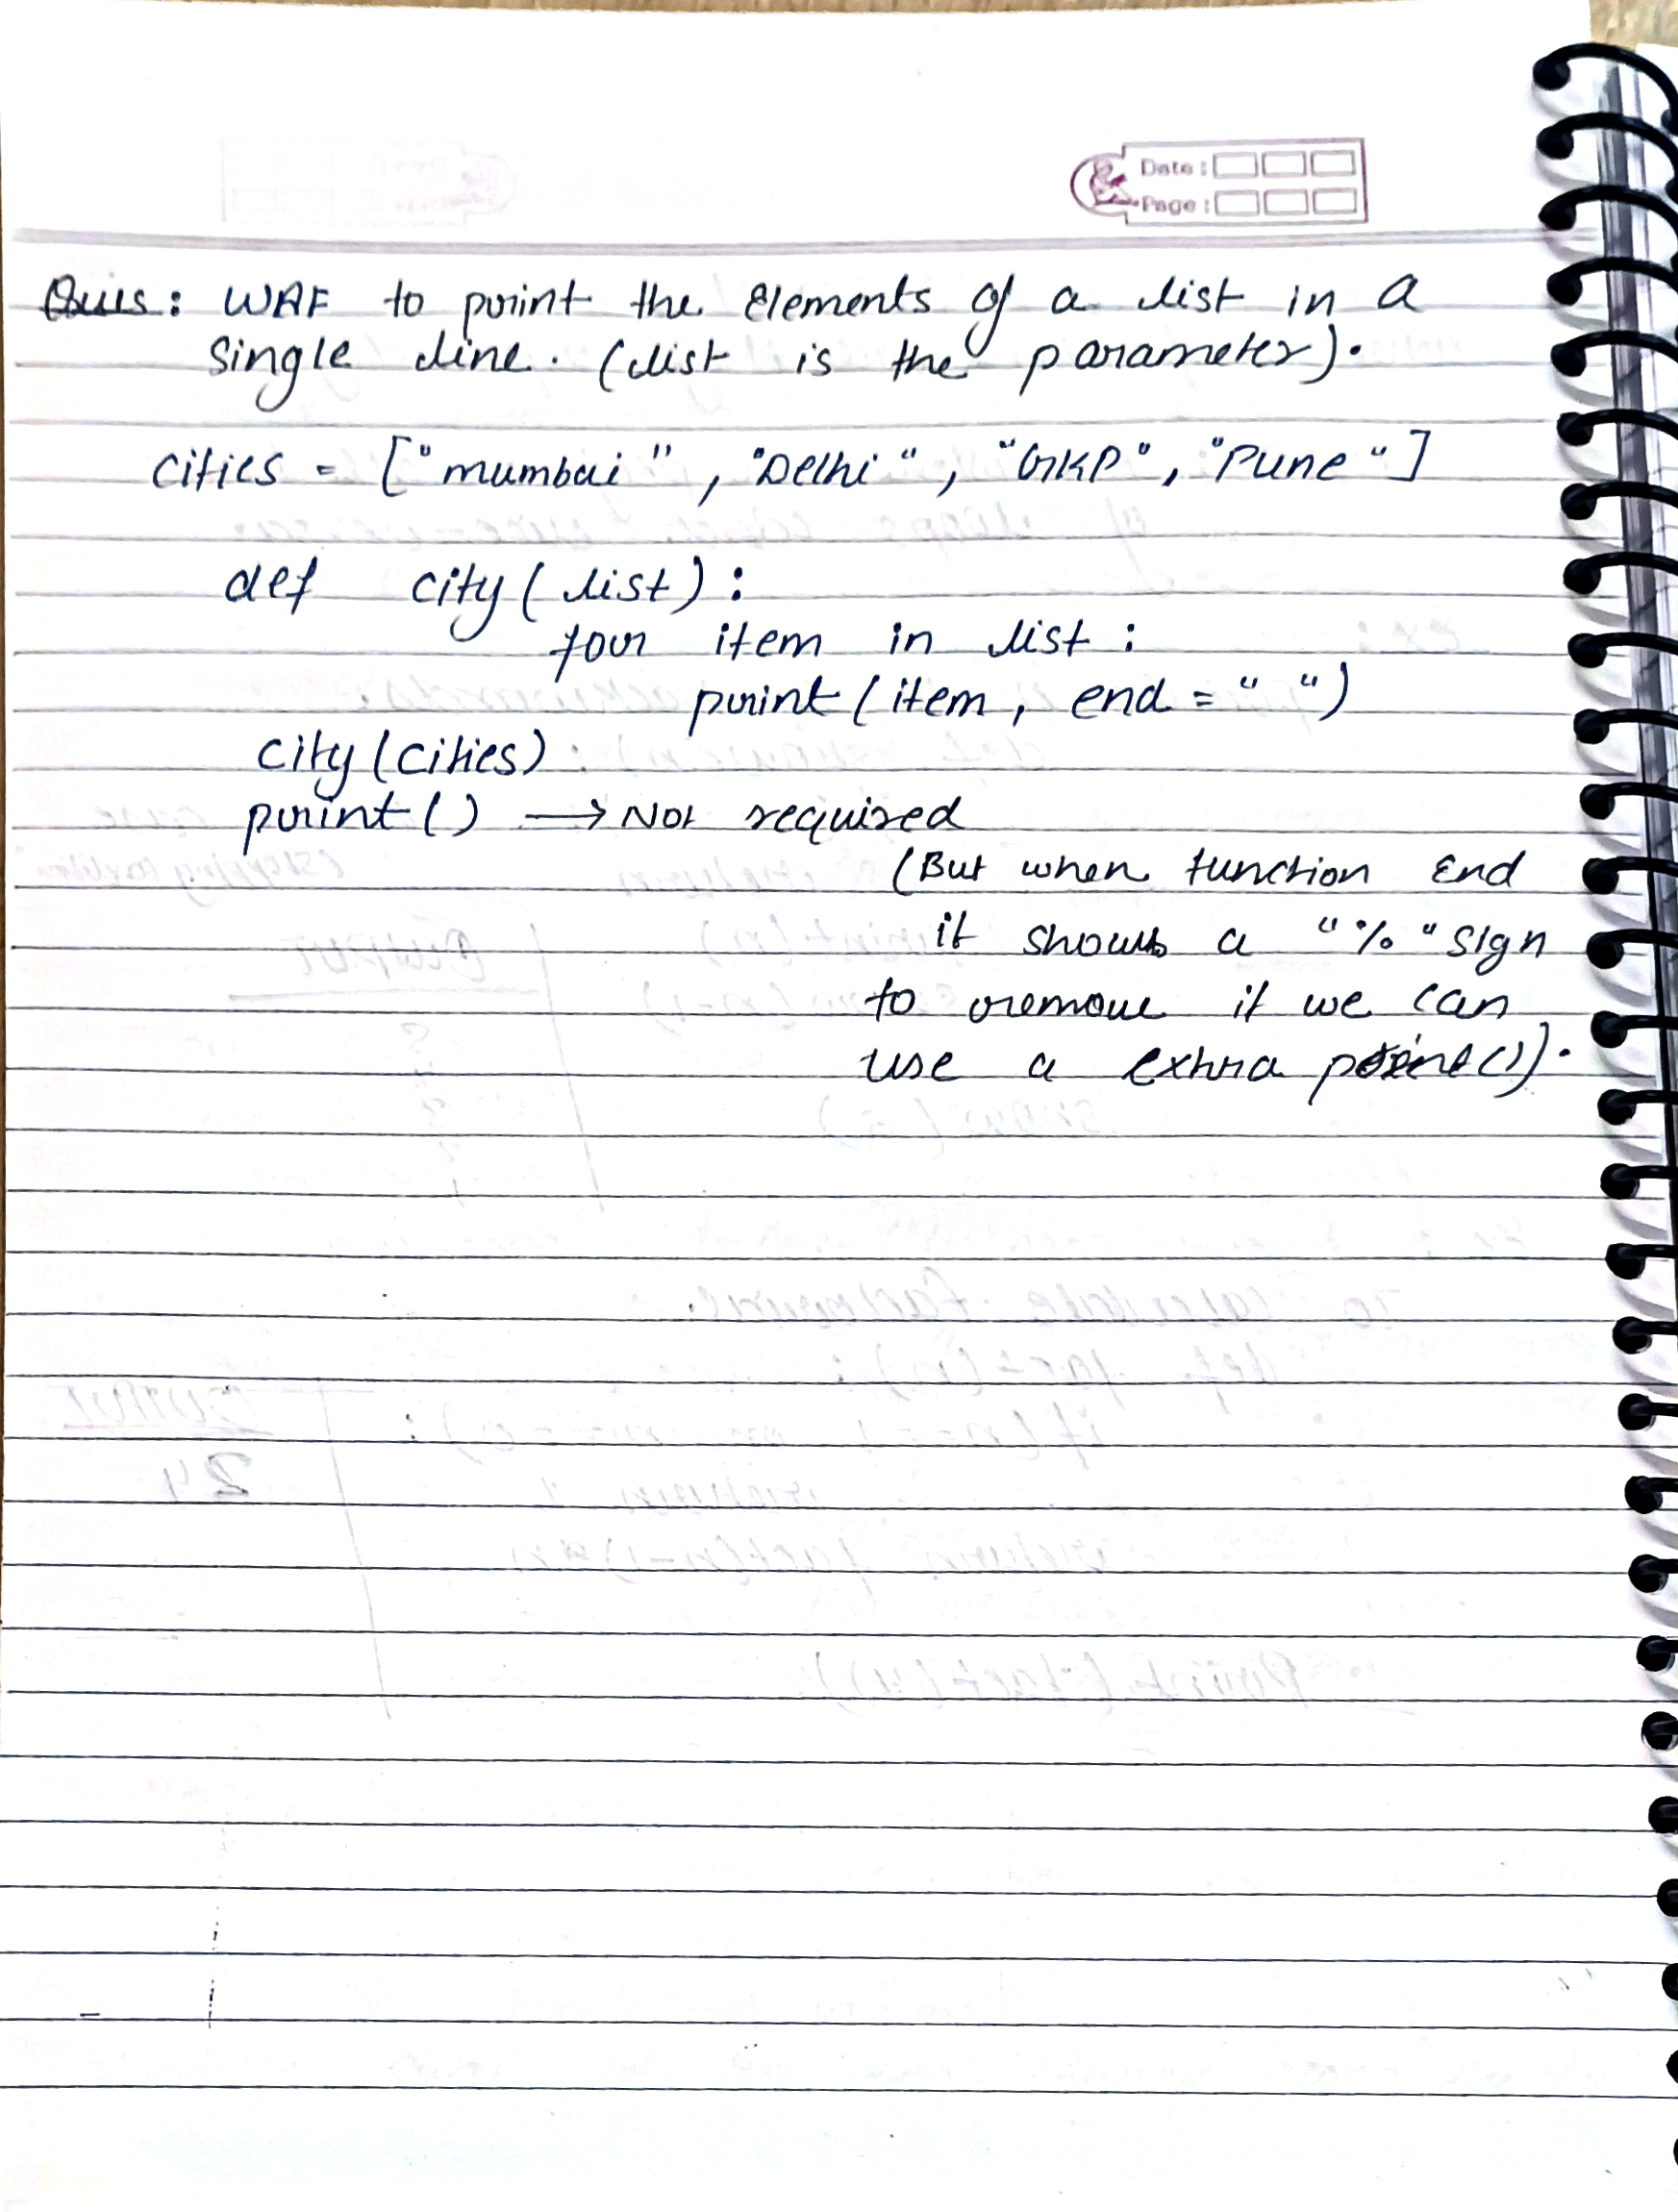 Date :
Page :
Ques : WAF to print the Elements of a list in a
single line. (list is the parameter).
cities = ["mumbai", "Delhi", "GKP", "Pune"]
def city(list) :
for item in list :
print(item, end = " ")
city(cities)
print() → Not required
(But when function End
it shows a "%" sign
to remove it we can
use a extra print()).